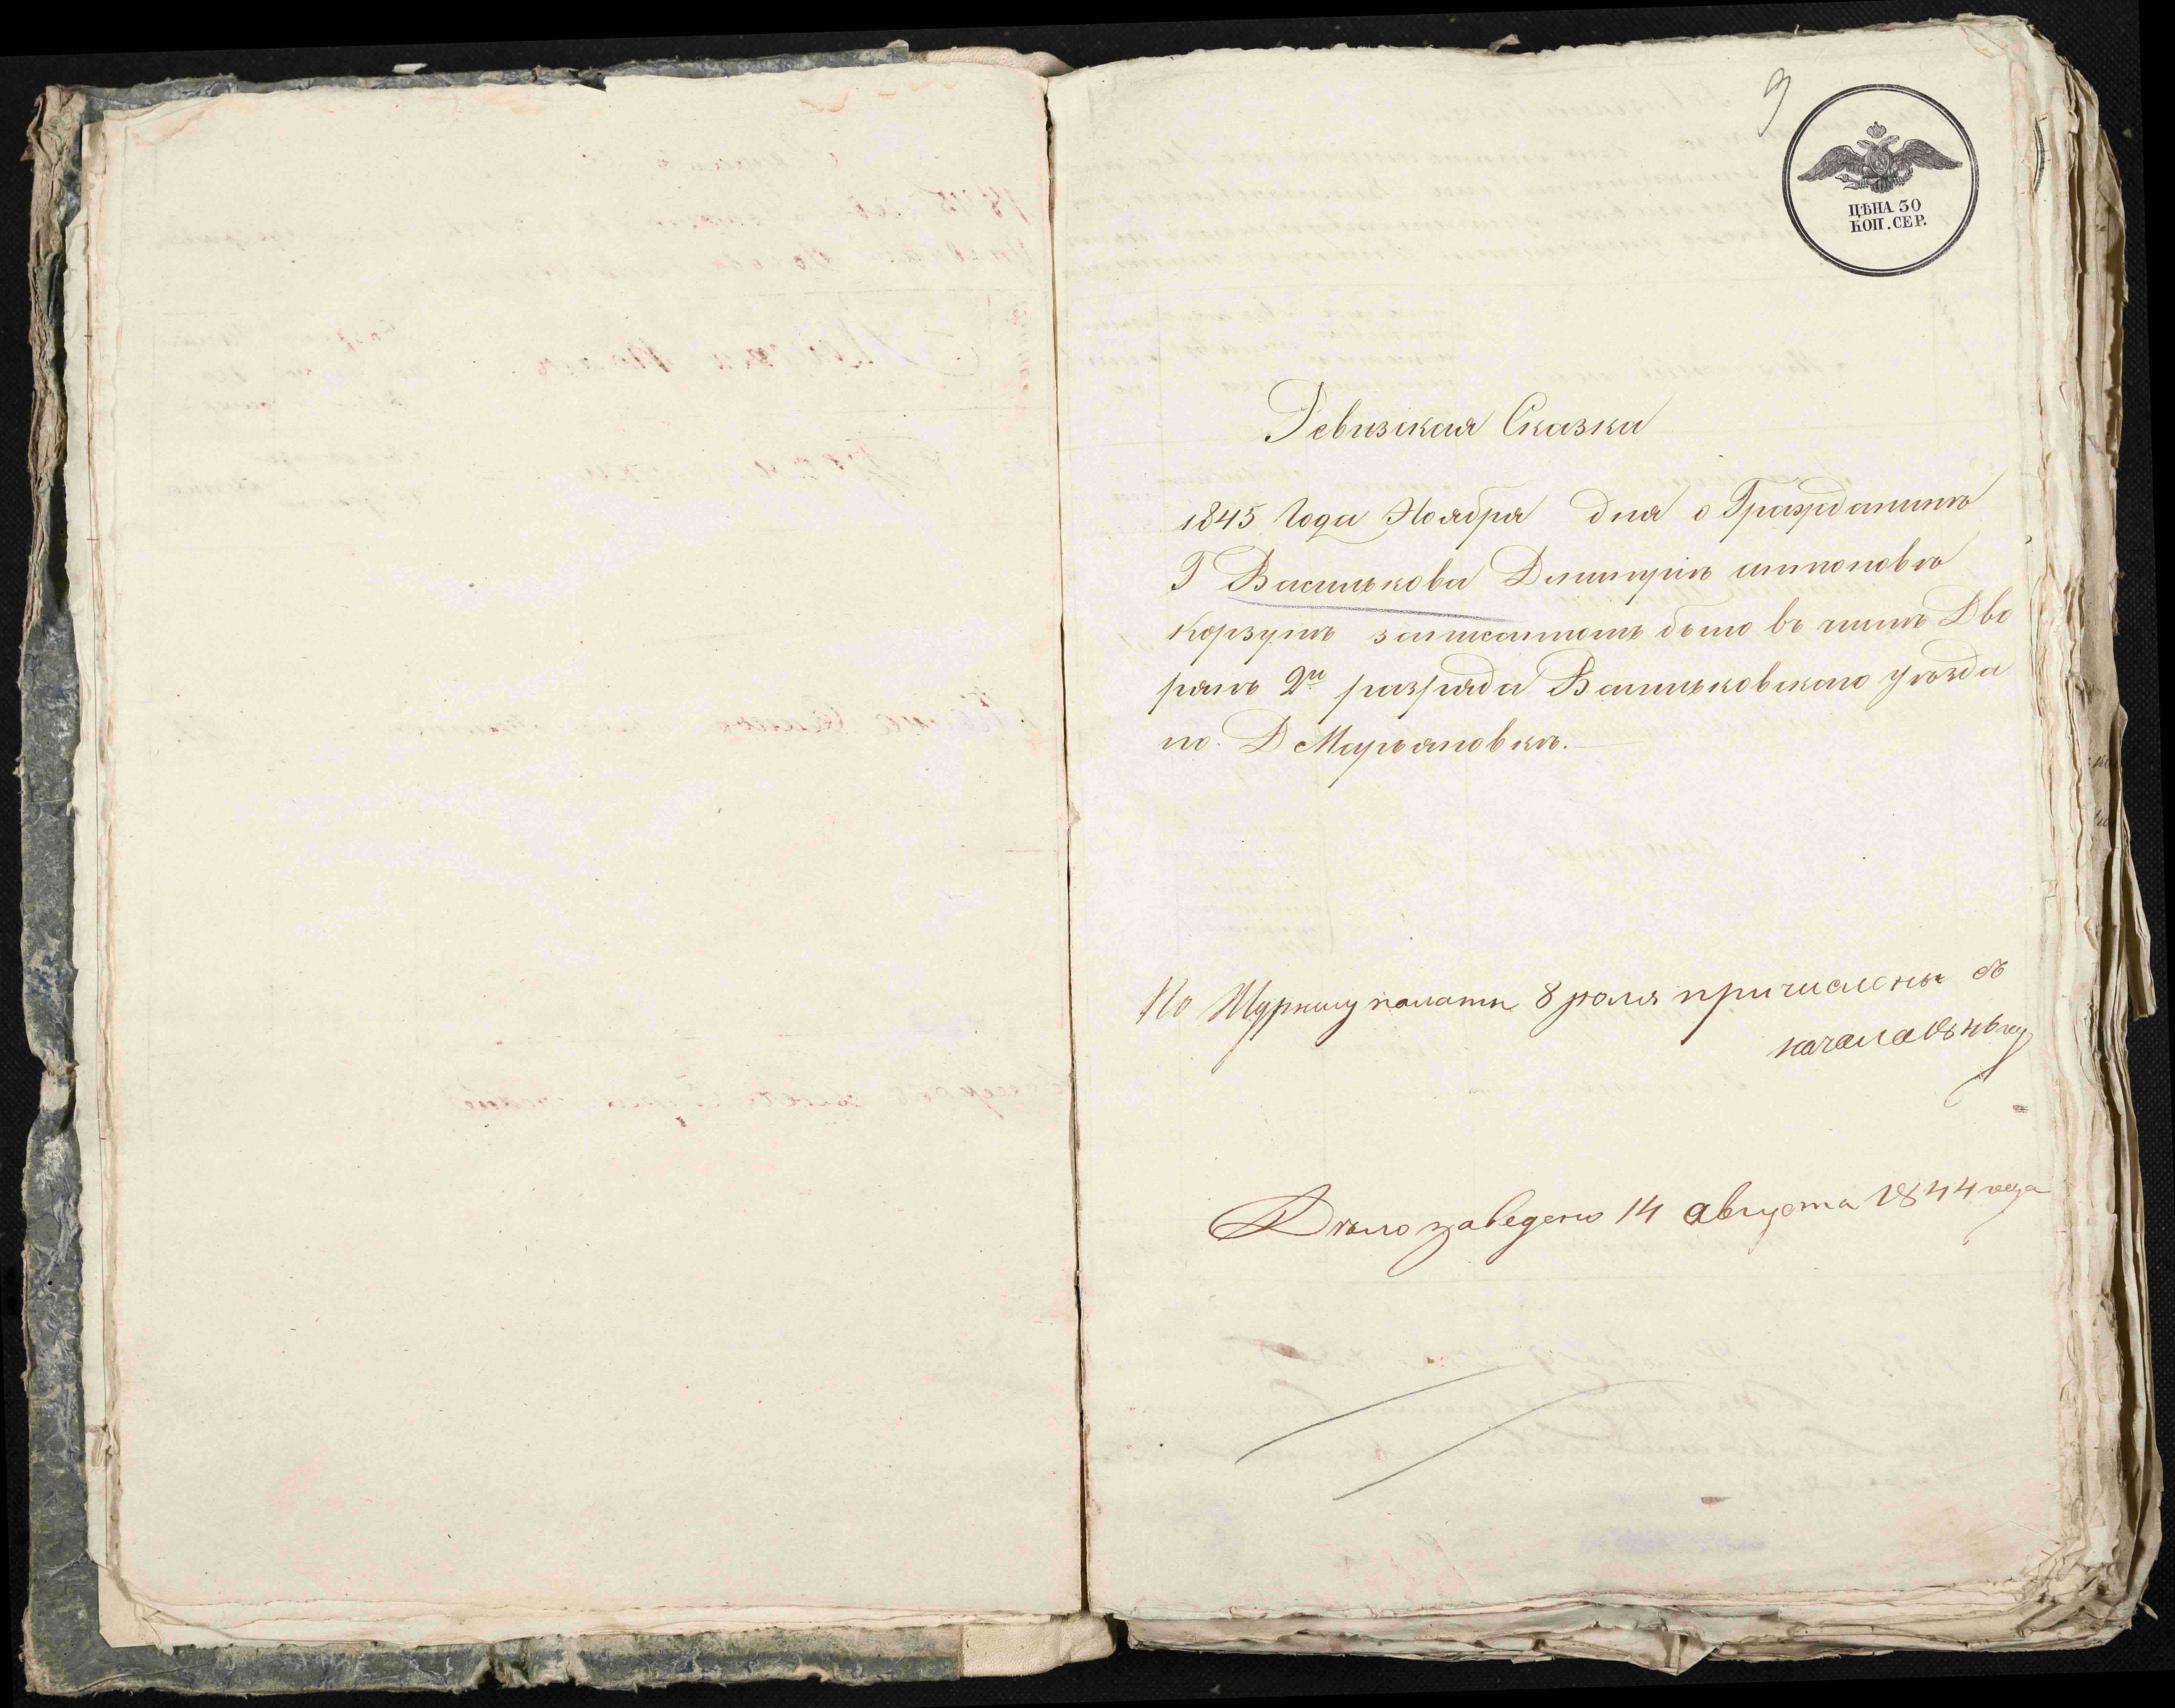 9
ЦѢНА 30
КОП. СЕР.
Ревизская Сказка
1845 Года Ноября дня о Гражданинѣ
Г Василькова Дмитріѣ антоновѣ
Корзунѣ записанномъ было въ числѣ Дво
рянъ 2го разряда Васильковского уѣзда
по Д Марьяновкѣ.
По Журналу палаты 8 причислены съ
Дѣло заведено 14 августа 1844 года